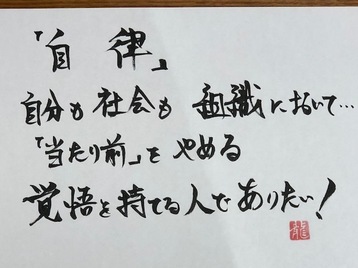 「自律」
自分も社会も組織において…
「当たり前」をやめる
覚悟を持てる人でありたい！